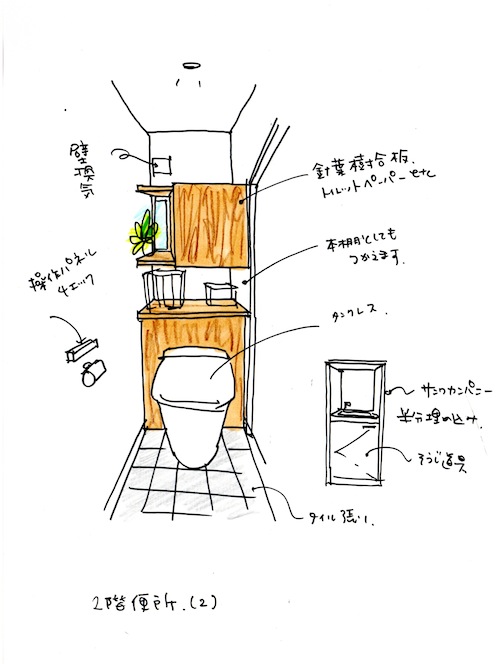 壁換気
針葉樹合板.
トイレットペーパーetc
本棚としても
つかえます.
操作パネル
チェック
タンクレス.
サンワカンパニー
半分埋め込み.
そうじ道具
タイル張り.
2階便所.(2)